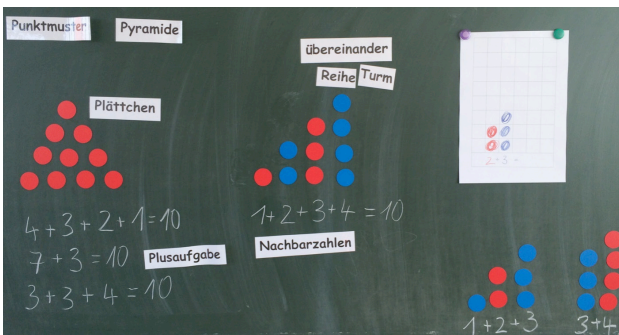 Punktmuster
Pyramide
übereinander
Reihe
Turm
Plättchen
4+3+2+1=10
7+3=10
Plusaufgabe
3+3+4=10
1+2+3+4=10
Nachbarzahlen
2+3
1+2+3
3+4